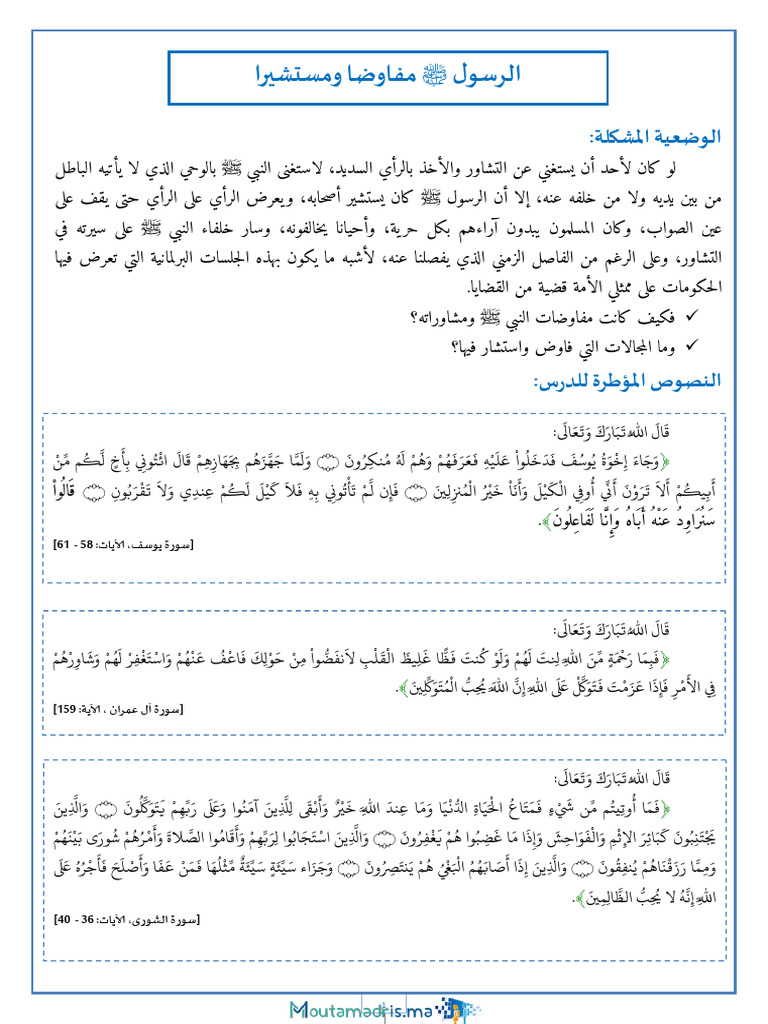 الرسول ﷺ مفاوضا ومستشيرا
الوضعية المشكلة:
لو كان لأحد أن يستغني عن التشاور والأخذ بالرأي السديد، لاستغنى النبي ﷺ بالوحي الذي لا يأتيه الباطل
من بين يديه ولا من خلفه عنه، إلا أن الرسول ﷺ كان يستشير أصحابه، ويعرض الرأي على الرأي حتى يقف على
عين الصواب، وكان المسلمون يبدون آراءهم بكل حرية، وأحيانا يخالفونه، وسار خلفاء النبي ﷺ على سيرته في
التشاور، وعلى الرغم من الفاصل الزمني الذي يفصلنا عنه، لأشبه ما يكون بهذه الجلسات البرلمانية التي تعرض فيها
الحكومات على ممثلي الأمة قضية من القضايا.
✓ فكيف كانت مفاوضات النبي ﷺ ومشاوراته؟
✓ وما المجالات التي فاوض واستشار فيها؟
النصوص المؤطرة للدرس:
قَالَ اللهُ تَبَارَكَ وَتَعَالَى:
﴿وَجَاءَ إِخْوَةُ يُوسُفَ فَدَخَلُواْ عَلَيْهِ فَعَرَفَهُمْ وَهُمْ لَهُ مُنكِرُونَ ۝ وَلَمَّا جَهَّزَهُم بِجَهَازِهِمْ قَالَ ائْتُونِي بِأَخٍ لَّكُم مِّنْ
أَبِيكُمْ أَلاَ تَرَوْنَ أَنِّي أُوفِي الْكَيْلَ وَأَنَاْ خَيْرُ الْمُنزِلِينَ ۝ فَإِن لَّمْ تَأْتُونِي بِهِ فَلاَ كَيْلَ لَكُمْ عِندِي وَلاَ تَقْرَبُونِ ۝ قَالُواْ
سَنُرَاوِدُ عَنْهُ أَبَاهُ وَإِنَّا لَفَاعِلُونَ﴾.
[سورة يوسف، الآيات: 58 - 61]
قَالَ اللهُ تَبَارَكَ وَتَعَالَى:
﴿فَبِمَا رَحْمَةٍ مِّنَ اللهِ لِنتَ لَهُمْ وَلَوْ كُنتَ فَظًّا غَلِيظَ الْقَلْبِ لاَنفَضُّواْ مِنْ حَوْلِكَ فَاعْفُ عَنْهُمْ وَاسْتَغْفِرْ لَهُمْ وَشَاوِرْهُمْ
فِي الأَمْرِ فَإِذَا عَزَمْتَ فَتَوَكَّلْ عَلَى اللهِ إِنَّ اللهَ يُحِبُّ الْمُتَوَكِّلِينَ﴾.
[سورة آل عمران ، الآية: 159]
قَالَ اللهُ تَبَارَكَ وَتَعَالَى:
﴿فَمَا أُوتِيتُم مِّن شَيْءٍ فَمَتَاعُ الْحَيَاةِ الدُّنْيَا وَمَا عِندَ اللهِ خَيْرٌ وَأَبْقَى لِلَّذِينَ آمَنُوا وَعَلَى رَبِّهِمْ يَتَوَكَّلُونَ ۝ وَالَّذِينَ
يَجْتَنِبُونَ كَبَائِرَ الإِثْمِ وَالْفَوَاحِشَ وَإِذَا مَا غَضِبُوا هُمْ يَغْفِرُونَ ۝ وَالَّذِينَ اسْتَجَابُوا لِرَبِّهِمْ وَأَقَامُوا الصَّلاَةَ وَأَمْرُهُمْ شُورَى بَيْنَهُمْ
وَمِمَّا رَزَقْنَاهُمْ يُنفِقُونَ ۝ وَالَّذِينَ إِذَا أَصَابَهُمُ الْبَغْيُ هُمْ يَنتَصِرُونَ ۝ وَجَزَاء سَيِّئَةٍ سَيِّئَةٌ مِّثْلُهَا فَمَنْ عَفَا وَأَصْلَحَ فَأَجْرُهُ عَلَى
اللهِ إِنَّهُ لا يُحِبُّ الظَّالِمِينَ﴾.
[سورة الشورى، الآيات: 36 - 40]
Moutamadris.ma